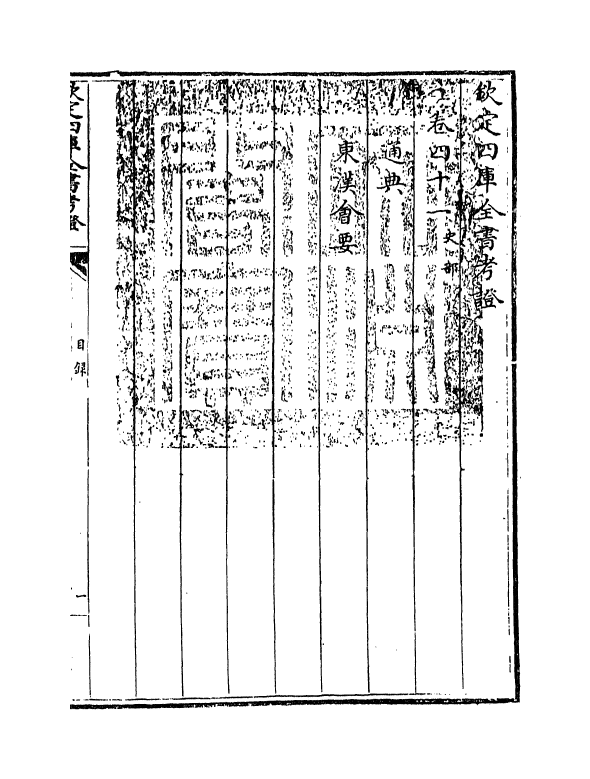 欽定四庫全書考證
卷四十一 史部
通典
東漢會要
欽定四庫全書考證
目錄
一